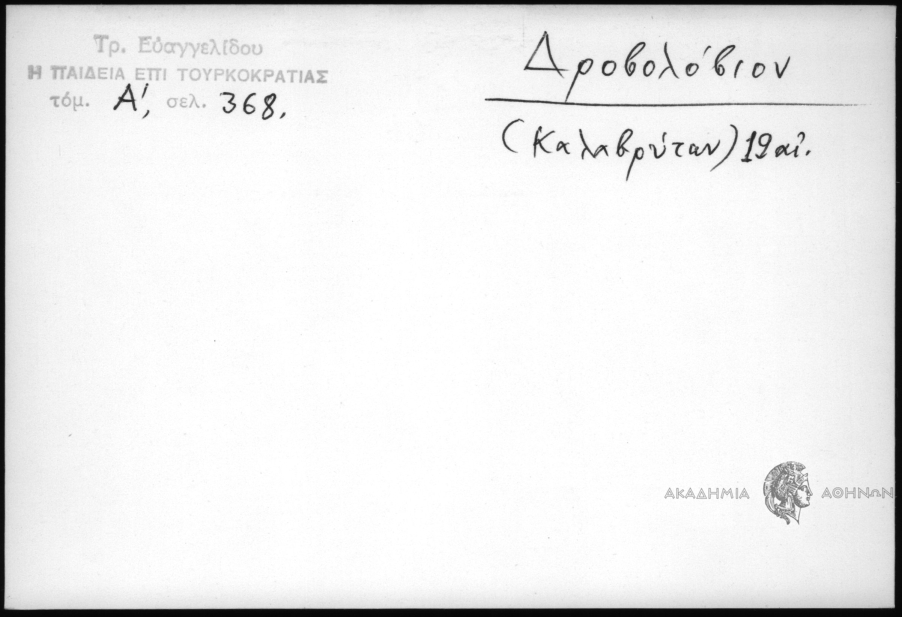 Τρ. Εὐαγγελίδου
Η ΠΑΙΔΕΙΑ ΕΠΙ ΤΟΥΡΚΟΚΡΑΤΙΑΣ
τόμ. Α', σελ. 368.
Δροβολόβιον
(Καλαβρύτων) 19 αἰ.
ΑΚΑΔΗΜΙΑ ΑΘΗΝΩΝ